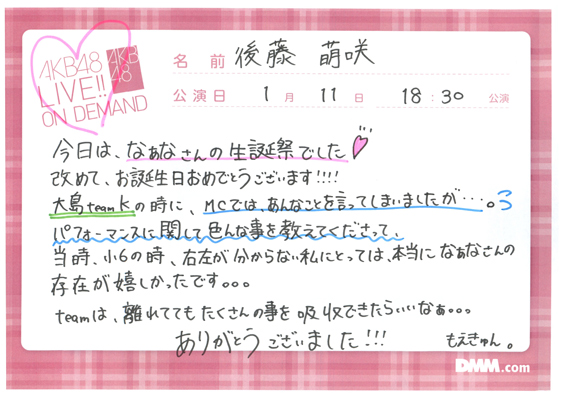 AKB48
LIVE!!
ON DEMAND
AKB
48
名 前 後藤 萌咲
公演日 1月 11日 18:30 公演
今日は、なぁなさんの生誕祭でした
改めて、お誕生日おめでとうございます!!!!
大島teamKの時に、MCでは、あんなことを言ってしまいましたが・・・。
パフォーマンスに関して色んな事を教えてくださって、
当時、小6の時、右左が分からない私にとっては、本当になぁなさんの
存在が嬉しかったです。。。
teamは、離れてても たくさんの事を吸収できたらいいなぁ。。。
ありがとうございました!!!
もえきゅん。
DMM.com